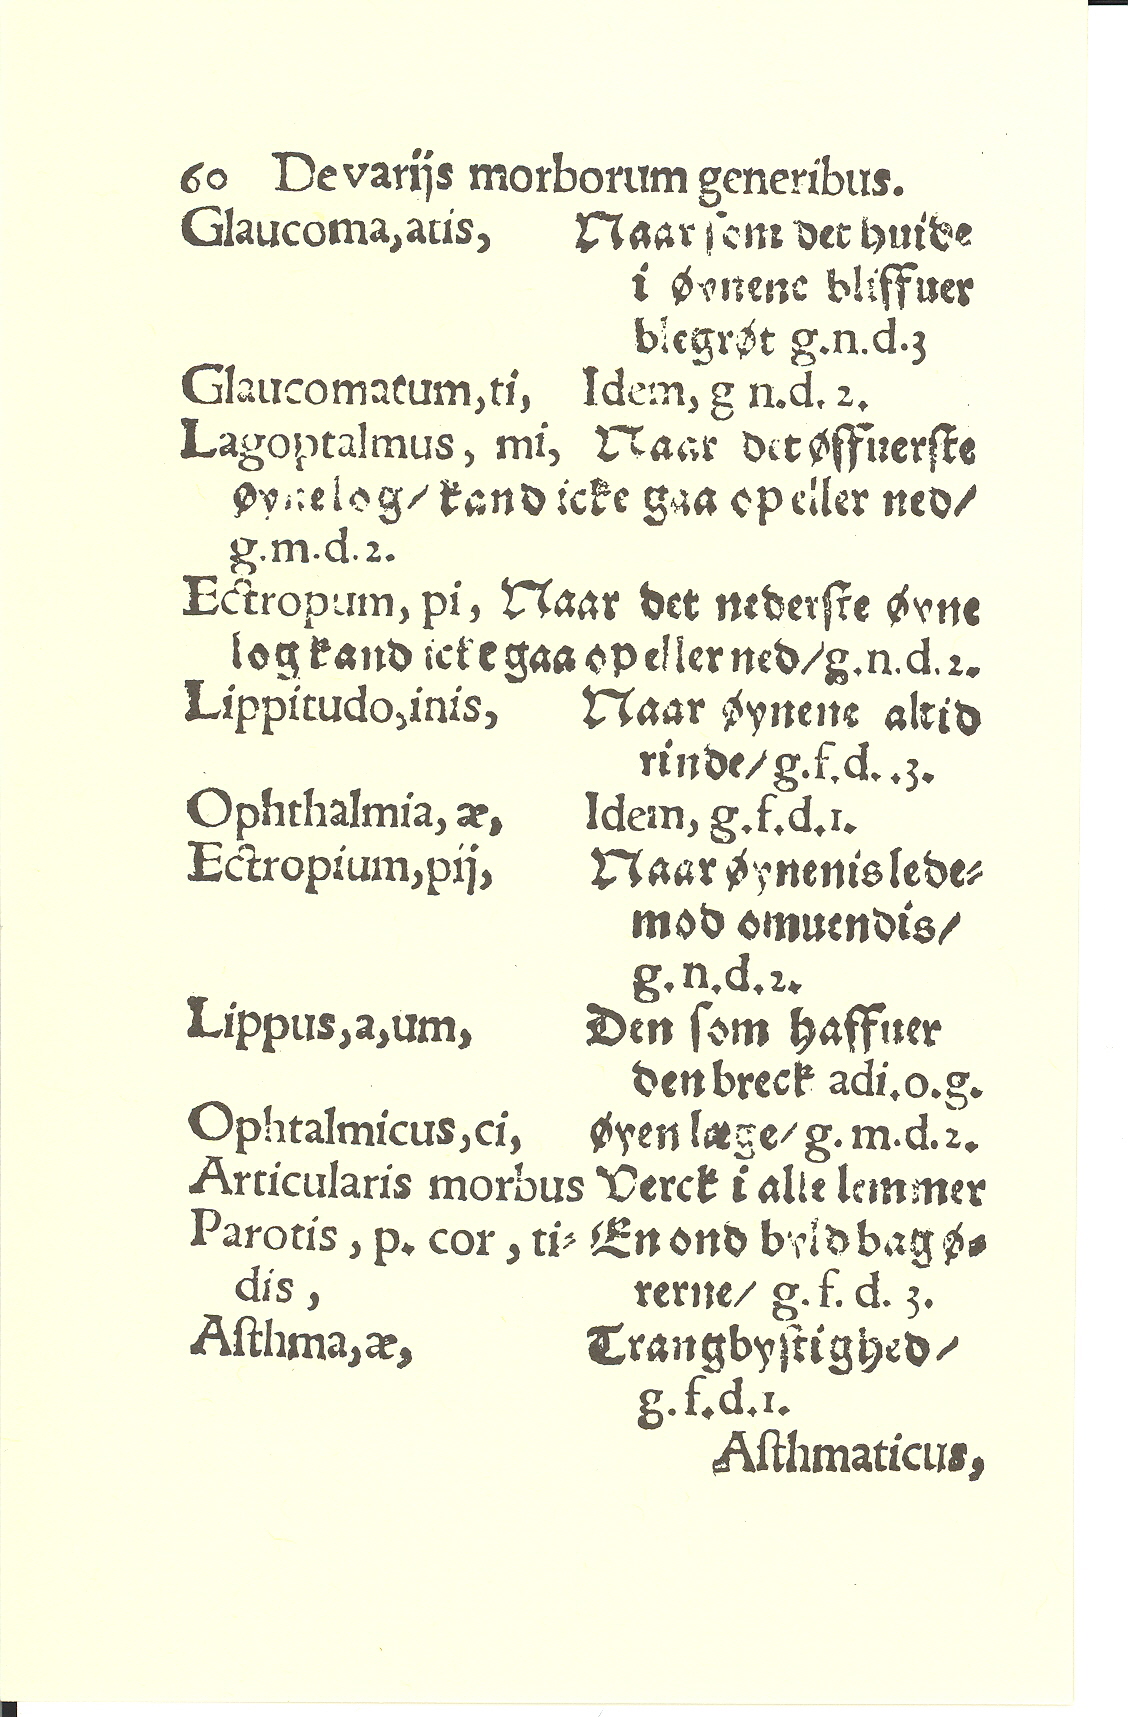 60 De varijs morborum generibus.
Glaucoma, atis, Naar som det huide
i Øynene bliffuer
blegrøt g.n.d.3
Glaucomatum, ti, Idem, g n.d. 2.
Lagoptalmus, mi, Naar det øffuerste
øynelog/ kand icke gaa op eller ned/
g.m.d.2.
Ectropum, pi, Naar det nederste øyne
log kand icke gaa op eller ned/ g.n.d.2.
Lippitudo, inis, Naar Øynene altid
rinde/ g.f.d..3.
Ophthalmia, æ, Idem, g.f.d.1.
Ectropium, pij, Naar Øynenis lede⸗
mod omuendis/
g.n.d.2.
Lippus, a, um, Den som haffuer
den breck adi.o.g.
Ophtalmicus, ci, Øyen læge/ g.m.d.2.
Articularis morbus Verck i alle lemmer
Parotis, p. cor, ti⸗ En ond byld bag ø⸗
dis, rerne/ g.f.d.3.
Aſthma, æ, Trangbyſtighed/
g.f.d.1.
Aſthmaticus,